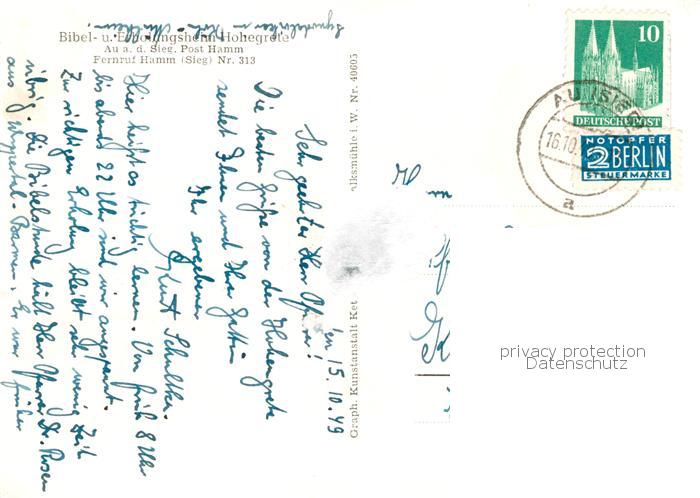 Bibel- u. Erholungsheim Hohegrete
Au a. d. Sieg, Post Hamm
Fernruf Hamm (Sieg) Nr. 313
den 15.10.49
Sehr geehrter Herr Pfarrer!
Die besten Grüße von der Hohengrete
sendet Ihnen und Ihrer Gattin
Ihr ergebener
Kurt
Hier heißt es tüchtig lernen. Von früh 8 Uhr
bis abends 22 Uhr sind wir angespannt.
Zur richtigen Erholung bleibt sehr wenig Zeit
übrig. Die Bibelstunde hält Herr Pfarrer Dr. Rosen
aus Wuppertal-Barmen. Er war früher
in Köln-Mülheim.
Graph. Kunstanstalt Ket
alksmühle i. W. Nr. 40605
10
DEUTSCHE POST
NOTOPFER
2 BERLIN
STEUERMARKE
AU (SIEG)
16.10.
a
privacy protection
Datenschutz